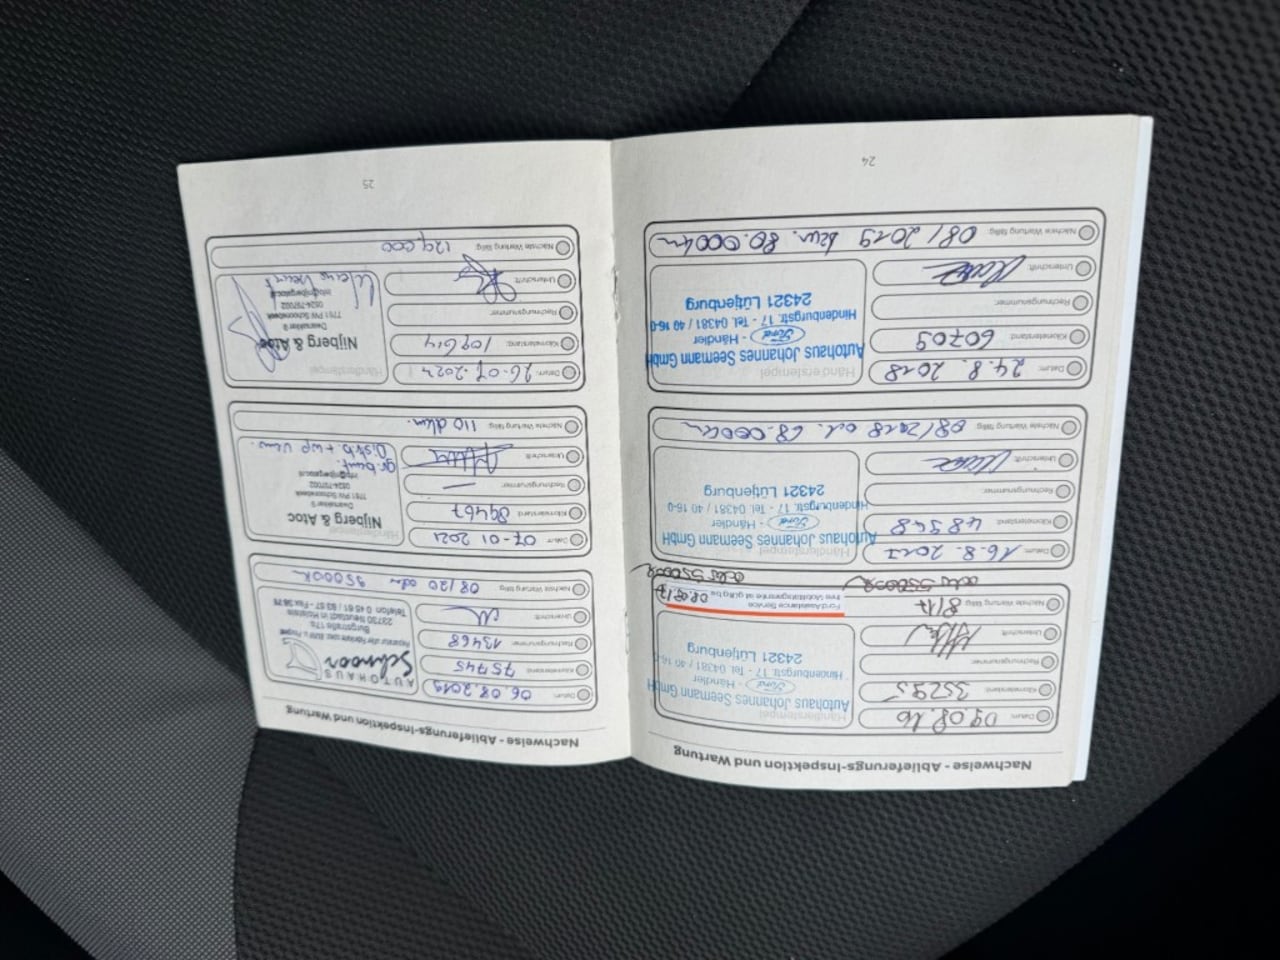 Nachweise - Ablieferungs-Inspektion und Wartung
Datum: 09.08.16
Kilometerstand: 35295
Rechnungsnummer:
Unterschrift:
Nächste Wartung fällig: 8/17
oder 55000k
Händlerstempel
Autohaus Johannes Seemann GmbH
Ford - Händler
Hindenburgstr. 17 - Tel. 04381 / 40 16-0
24321 Lütjenburg
Ford Assistance Service
Ihre Mobilitätsgarantie ist gültig bis 08.08.17
oder 55000k
Datum: 16.8. 2017
Kilometerstand: 48548
Rechnungsnummer:
Unterschrift:
Nächste Wartung fällig: 08/2018 od. 68.000km
Händlerstempel
Autohaus Johannes Seemann GmbH
Ford - Händler
Hindenburgstr. 17 - Tel. 04381 / 40 16-0
24321 Lütjenburg
Datum: 24.8. 2018
Kilometerstand: 60709
Rechnungsnummer:
Unterschrift:
Nächste Wartung fällig: 08/2019 bzw. 80.000km
Händlerstempel
Autohaus Johannes Seemann GmbH
Ford - Händler
Hindenburgstr. 17 - Tel. 04381 / 40 16-0
24321 Lütjenburg
24
Nachweise - Ablieferungs-Inspektion und Wartung
Datum: 06.08.2019
Kilometerstand: 75745
Rechnungsnummer: 13468
Unterschrift:
Nächste Wartung fällig: 08/20 oder 95000k
AUTOHAUS
Schnoor
Burgstraße 17a
23730 Neustadt in Holstein
Datum: 07-01 2021
Kilometerstand: 89467
Rechnungsnummer: —
Unterschrift:
Nächste Wartung fällig: 110 dkm.
Händlerstempel
Nijberg & Atoc
Dwarsakker 9
7761 PW Schoonebeek
0524-797002
gr. beurt.
Distrib. + wp vern.
Datum: 26-07-2021
Kilometerstand: 109614
Rechnungsnummer:
Unterschrift:
Nächste Wartung fällig: 129,000
Händlerstempel
Nijberg & Atoc
Dwarsakker 9
7761 PW Schoonebeek
0524-797002
Kleine beurt
25